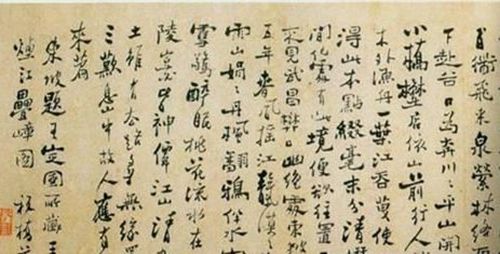 道飛來泉縈林絡
下赴谷口為奔川々平山開
小橋野店依山前行人
木外漁舟一葉江吞天使
得此本點綴毫末分清
間何處有此境便欲往置
不見武昌樊口幽絕處東坡
五年春風搖江天漠々
雨山娟々丹楓翻鴉伴水
雪驚醉眠桃花流水在
陵豈必皆神仙江山清
土雖有去路尋無緣還
三歎息山中故人應有
來篇
東坡題王定國所藏王
煙江疊嶂圖